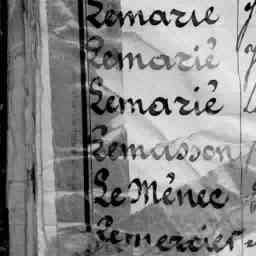 Lemarie
Lemarié
Lemarié
Lemasson
Le Ménec
Lemercier